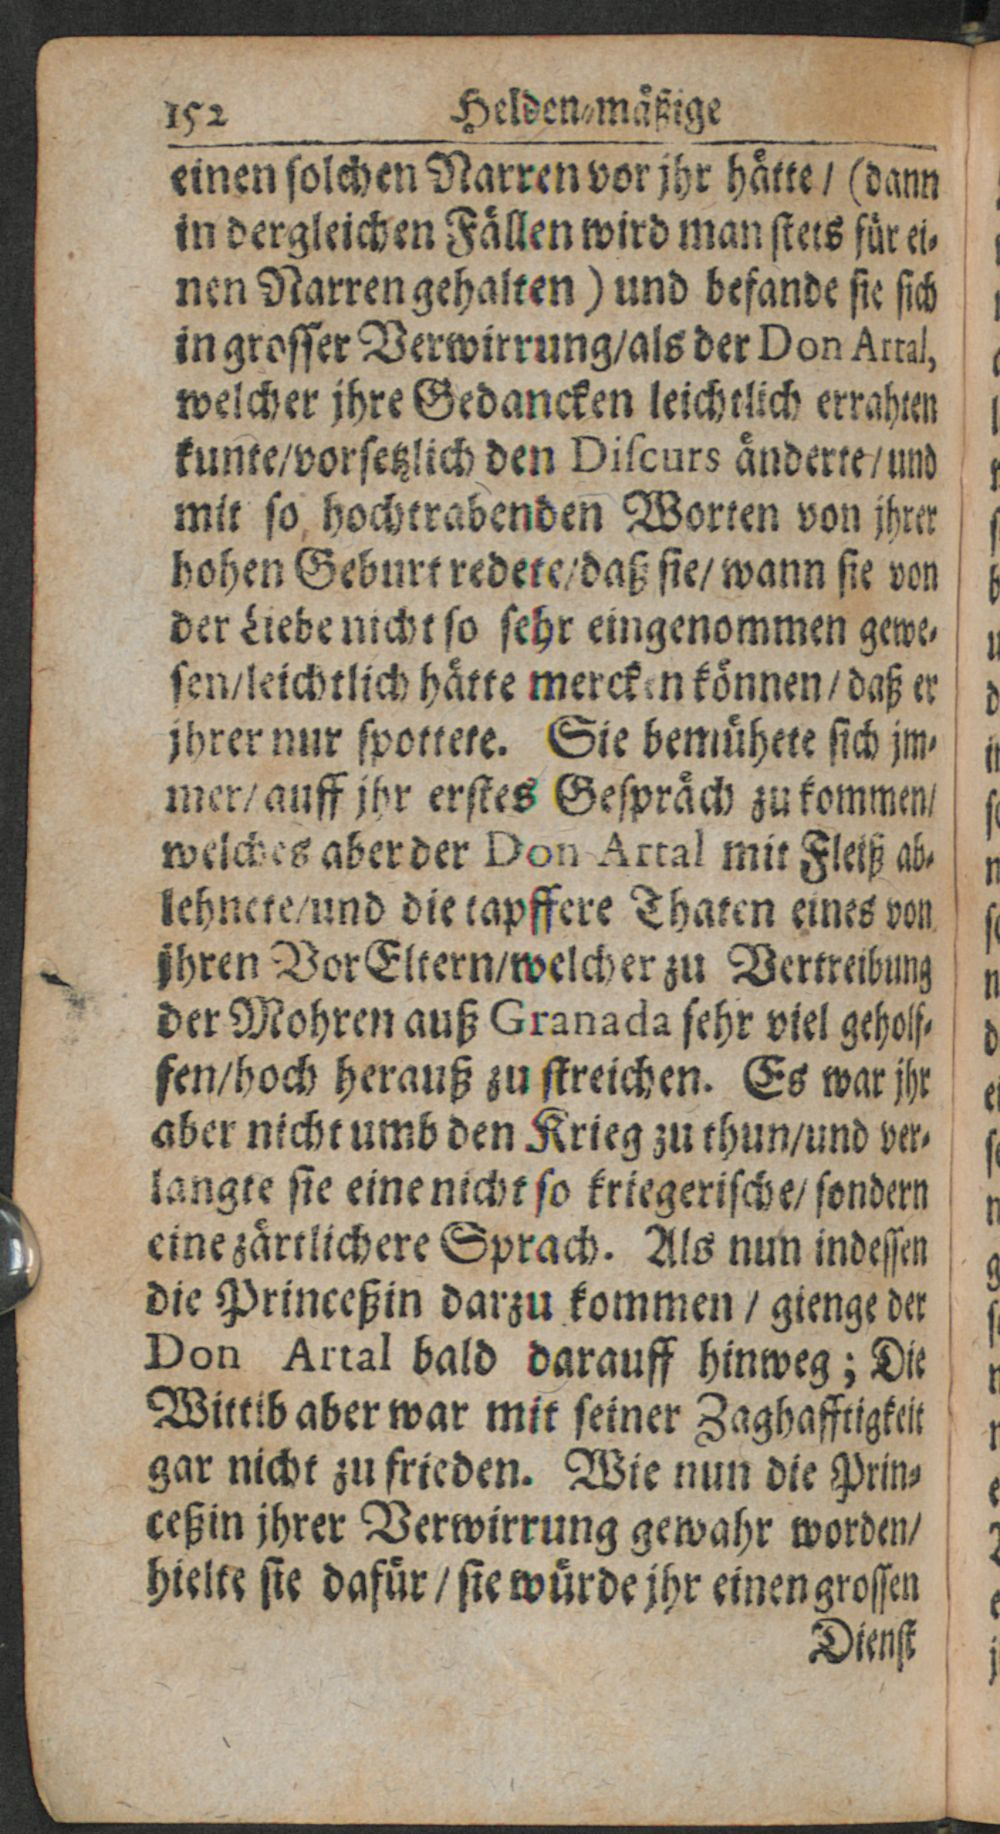 152 Helden-mäßige
einen solchen Narren vor jhr hätte / (dann
in dergleichen Fällen wird man stets für ei-
nen Narren gehalten) und befande sie sich
in grosser Verwirrung/als der Don Artal,
welcher jhre Gedancken leichtlich errahten
kunte/vorsetzlich den Discurs änderte/und
mit so hochtrabenden Worten von jhrer
hohen Geburt redete/daß sie/wann sie von
der Liebe nicht so sehr eingenommen gewe-
sen/leichtlich hätte mercken können/daß er
jhrer nur spottete. Sie bemühete sich jm-
mer/auff jhr erstes Gespräch zu kommen/
welches aber der Don Artal mit Fleiß ab-
lehnete/und die tapffere Thaten eines von
jhren VorEltern/welcher zu Vertreibung
der Mohren auß Granada sehr viel geholf-
fen/hoch herauß zu streichen. Es war jhr
aber nicht umb den Krieg zu thun/und ver-
langte sie eine nicht so kriegerische/sondern
eine zärtlichere Sprach. Als nun indessen
die Princeßin darzu kommen / gienge der
Don Artal bald darauff hinweg; Die
Wittib aber war mit seiner Zaghafftigkeit
gar nicht zu frieden. Wie nun die Prin-
ceßin jhrer Verwirrung gewahr worden/
hielte sie dafür / sie würde jhr einen grossen
Dienst